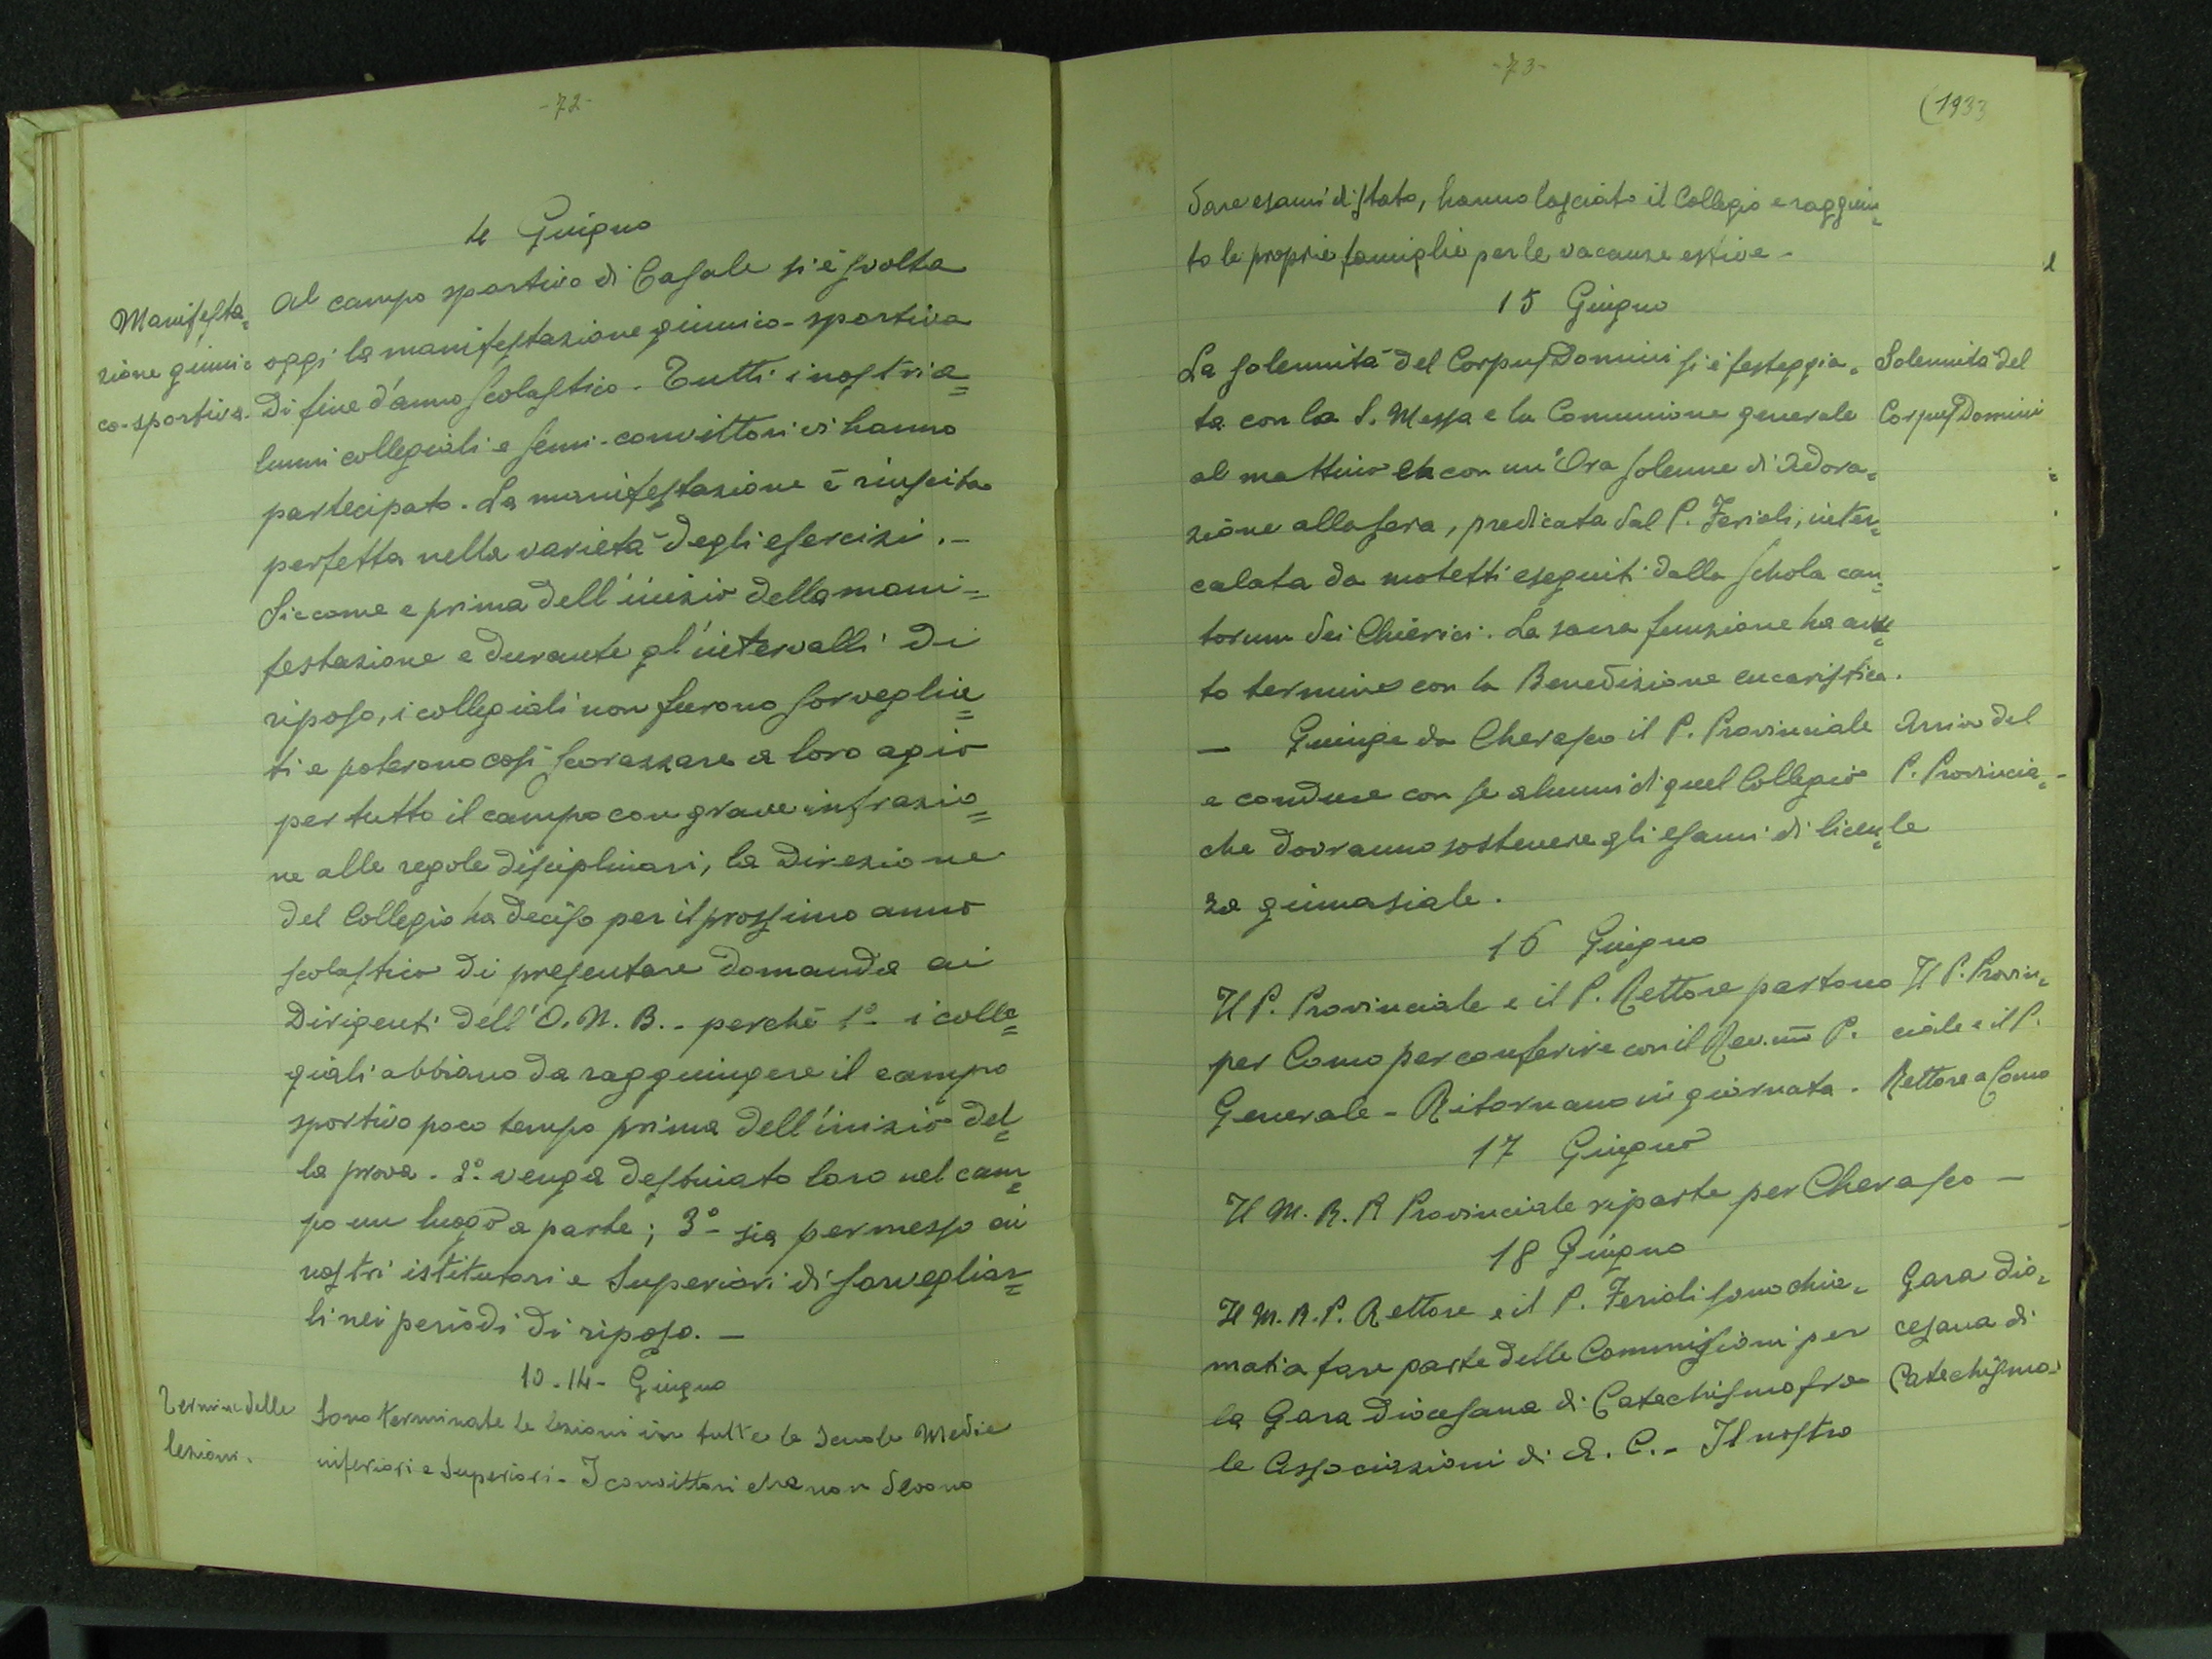 -72-
4 Giugno
Manifesta=
zione ginni
co-sportiva.
Al campo sportivo di Casale si è svolta
oggi la manifestazione ginnico-sportiva
di fine d'anno scolastico. Tutti i nostri a=
lunni collegiali e semi-convittori vi hanno
partecipato. La manifestazione è riuscita
perfetta nella varietà degli esercizi.-
Siccome e prima dell'inizio della mani=
festazione e durante gl'intervalli di
riposo, i collegiali non furono sorveglia=
ti e poterono così scorazzare a loro agio
per tutto il campo con grave infrazio=
ne alle regole disciplinari, la Direzione
del Collegio ha deciso per il prossimo anno
scolastico di presentare domanda ai
Dirigenti dell'O.N.B.- perchè 1°- i colle=
giali abbiano da raggiungere il campo
sportivo poco tempo prima dell'inizio del=
la prova. 2°. venga destinato loro nel cam=
po un luogo a parte; 3°- sia permesso ai
nostri istitutori e Superiori di sorvegliar=
li nei periodi di riposo.-
10-14- Giugno
Termine delle
lezioni.
Sono terminate le lezioni in tutte le Scuole Medie
inferiori e Superiori- I convittori che non devono
-73-
(1933
dare esami di stato, hanno lasciato il Collegio e raggiun=
to le proprie famiglie per le vacanze estive-
15 Giugno
La solennità del Corpus Domini si è festeggia=
ta con la S. Messa e la Comunione generale
al mattino e con un'Ora solenne di Adora=
zione alla sera, predicata dal P. Ferioli, inter=
calata da motetti eseguiti dalla schola can=
torum dei Chierici. La sacra funzione ha avu=
to termine con la Benedizione eucaristica.
Solennità del
Corpus Domini
- Giunge da Cherasco il P. Provinciale
e conduce con se alunni di quel Collegio
che dovranno sostenere gli esami di licen=
za ginnasiale.
Arrivo del
P. Provincia=
le
16 Giugno
Il P. Provinciale e il P. Rettore partono
per Como per conferire con il Rev.mo P.
Generale- Ritornano in giornata.
Il P. Provin=
ciale e il P.
Rettore a Como
17 Giugno
Il M. R. P. Provinciale riparte per Cherasco-
18 Giugno
Il M. R. P. Rettore e il P. Ferioli sono chia=
mati a fare parte delle Commissioni per
la Gara Diocesana di Catechismo fra
le Associazioni di A. C.- Il nostro
Gara dio=
cesana di
Catechismo